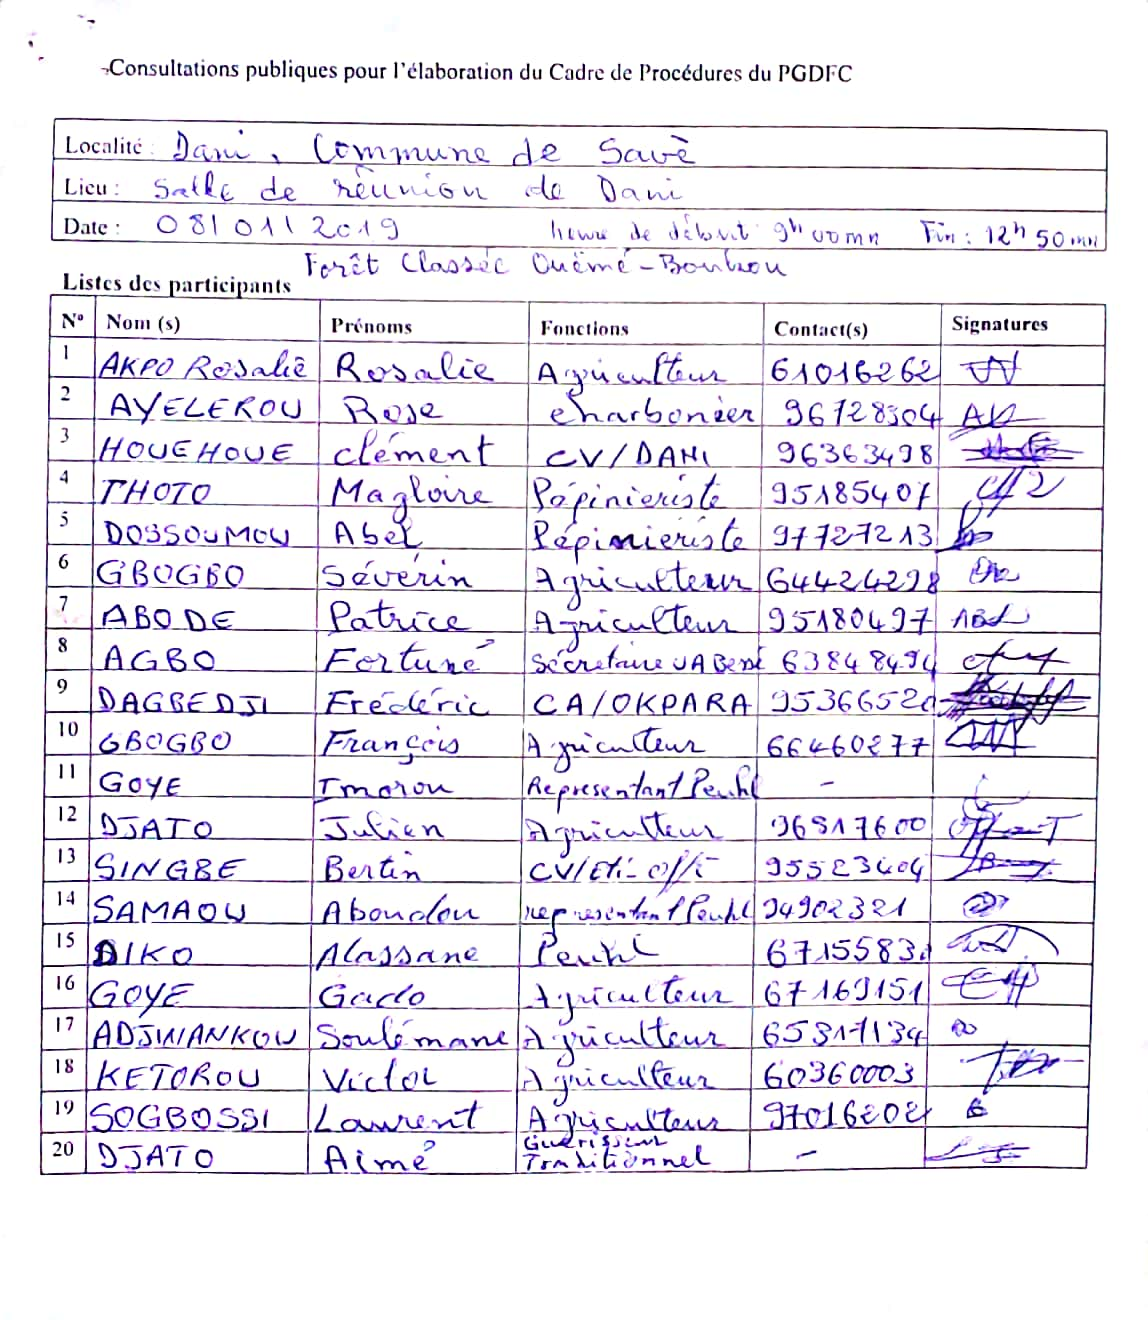 Consultations publiques pour l'élaboration du Cadre de Procédures du PGDFC
Localité : Dani, Commune de Savè
Lieu : Salle de réunion de Dani
Date : 08/01/2019 heure de début 9h 00mn Fin : 12h 50mn
Forêt Classée Ouémé-Boukou
Listes des participants
N° Nom (s) Prénoms Fonctions Contact(s) Signatures
1 AKPO Rosalie Rosalie Agriculteur 61016262
2 AYELEROU Rose charbonier 96728304
3 HOUEHOUE Clément CV/DANI 96363498
4 THOTO Magloire Pépinieriste 95185407
5 DOSSOUMOU Abel Pépinieriste 97727213
6 GBOGBO Séverin Agriculteur 64424298
7 ABODE Patrice Agriculteur 95180497
8 AGBO Fortuné Sécretaire 63848494
9 DAGBEDJI Frédéric CA/OKPARA 9536652
10 GBOGBO François Agriculteur 66460277
11 GOYE Imorou Representant Peuhl -
12 DJATO Julien Agriculteur 96817600
13 SINGBE Bertin 95523404
14 SAMAOU Aboudou representant Peuhl 94902321
15 DIKO Alassane Peuhl 6715583
16 GOYE Gado Agriculteur 67169151
17 Soulémane Agriculteur 65817134
18 KETOROU Victor Agriculteur 60360003
19 SOGBOSSI Laurent Agriculteur 97016202
20 DJATO Aimé Guérisseur Traditionnel -